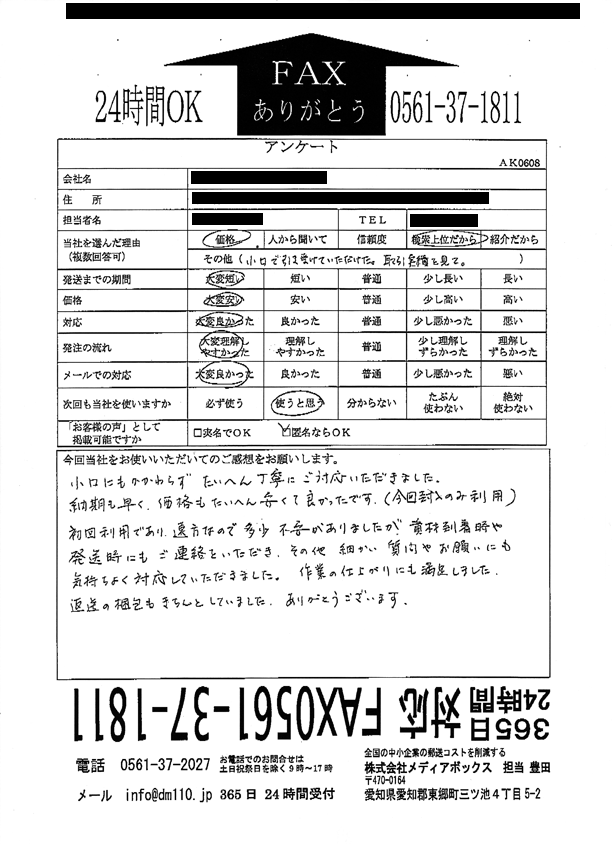 24時間OK
FAX
ありがとう
0561-37-1811
アンケート
AK0608
会社名
住 所
担当者名 TEL
当社を選んだ理由 (複数回答可) 価格 人から聞いて 信頼度 検索上位だから 紹介だから
その他 ( 小口で引き受けていただけた。取引実績を見て。 )
発送までの期間 大変短い 短い 普通 少し長い 長い
価格 大変安い 安い 普通 少し高い 高い
対応 大変良かった 良かった 普通 少し悪かった 悪い
発注の流れ 大変理解しやすかった 理解しやすかった 普通 少し理解しずらかった 理解しずらかった
メールでの対応 大変良かった 良かった 普通 少し悪かった 悪い
次回も当社を使いますか 必ず使う 使うと思う 分からない たぶん使わない 絶対使わない
「お客様の声」として掲載可能ですか □実名でOK ☑匿名ならOK
今回当社をお使いいただいてのご感想をお願いします。
小口にもかかわらず たいへん丁寧にご対応いただきました。
納期も早く、価格もたいへん安くて良かったです。(今回封入のみ利用)
初回利用であり、遠方なので多少 不安がありましたが、資材到着時や
発送時にもご連絡をいただき、その他 細かい質問やお願いにも
気持ちよく対応していただきました。 作業の仕上がりにも満足しました。
返送の梱包もきちんとしていました。ありがとうございます。
365日24時間 対応 FAX0561-37-1811
電話 0561-37-2027 お電話でのお問合せは 土日祝祭日を除く9時~17時
メール info@dm110.jp 365日 24時間受付
全国の中小企業の郵送コストを削減する
株式会社メディアボックス 担当 豊田
〒470-0164
愛知県愛知郡東郷町三ツ池4丁目5-2